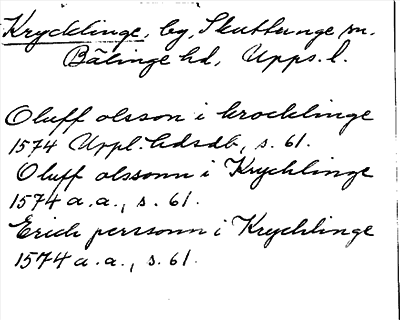 Krycklinge, by, Skuttunge sn.
Bälinge hd, Upps. l.
Oluff olsson i krocklinge
1574 Uppl. hdsdb, s. 61.
Oluff olssonn i Krychlinge
1574 a. a., s. 61.
Erich perssonn i Krychlinge
1574 a. a., s. 61.